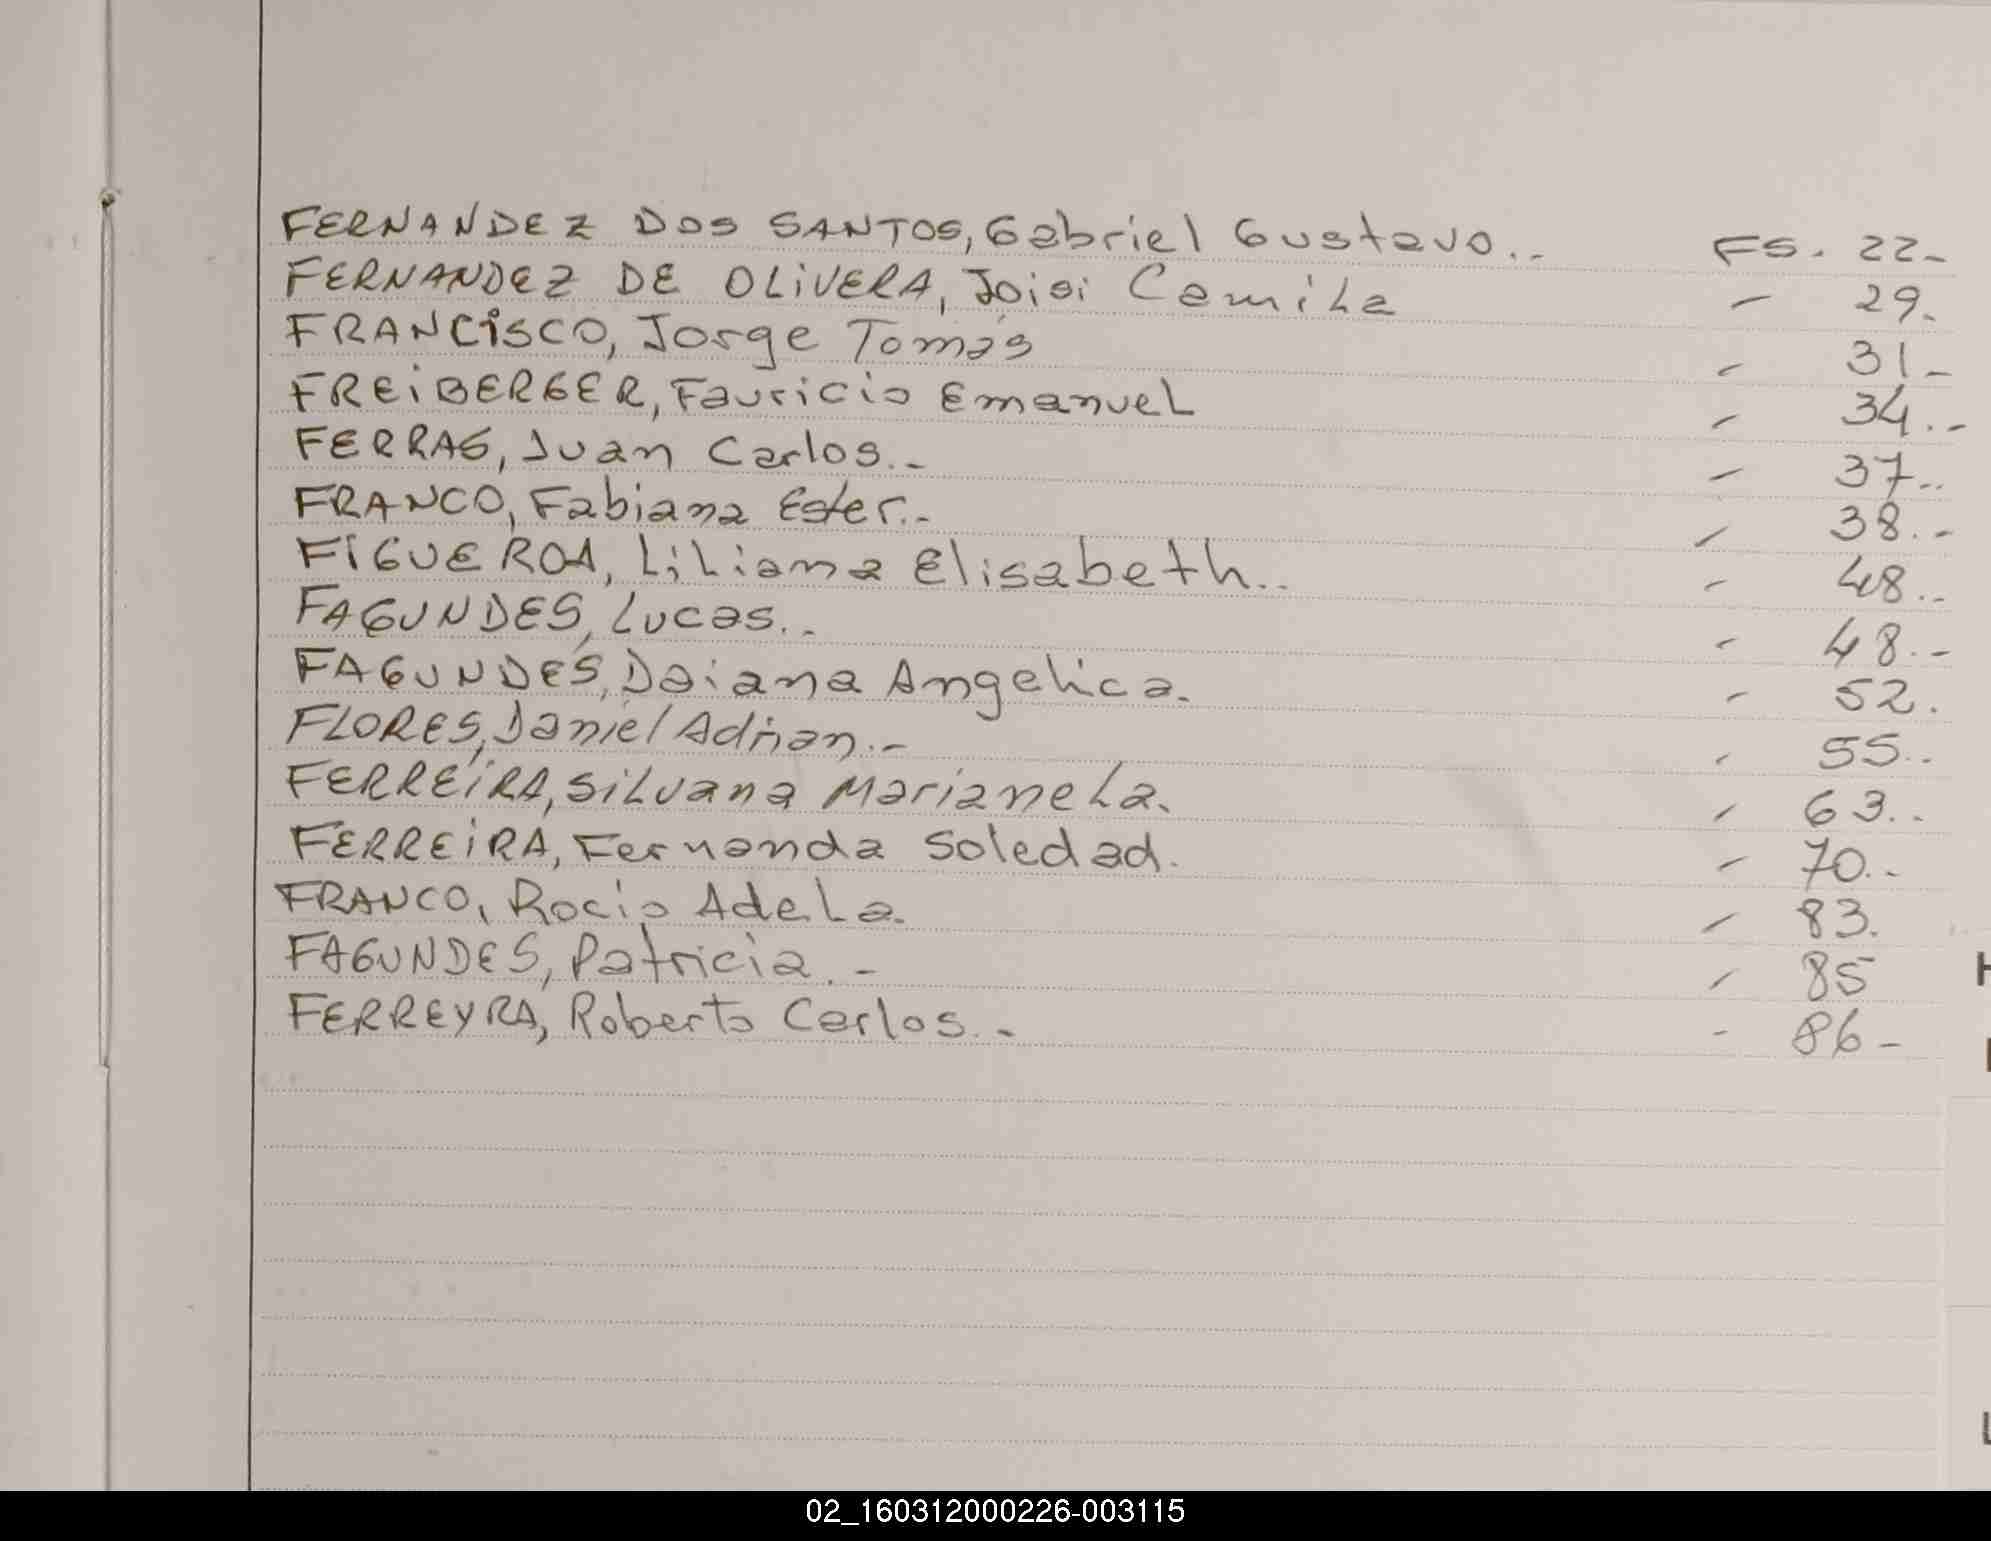 FERNANDEZ DOS SANTOS, Gabriel Gustavo.. FS. 22-
FERNANDEZ DE OLiVERA, Joisi Camila - 29.
FRANCiSCO, Jorge Tomás - 31-
FREiBERGER, Fauricio Emanuel - 34.-
FERRAS, Juan Carlos.- - 37..
FRANCO, Fabiana Ester.- - 38.-
FIGUEROA, Liliana Elisabeth.. - 48..
FAGUNDES, Lucas.. - 48.-
FAGUNDES, Daiana Angelica. - 52.
FLORES, Daniel Adrian.- - 55..
FERREiRA, Silvana Marianela. - 63..
FERREiRA, Fernanda Soledad. - 70.-
FRANCO, Rocio Adela. - 83.
FAGUNDES, Patricia.- - 85
FERREYRA, Roberto Carlos.- - 86-
H
L
02_160312000226-003115